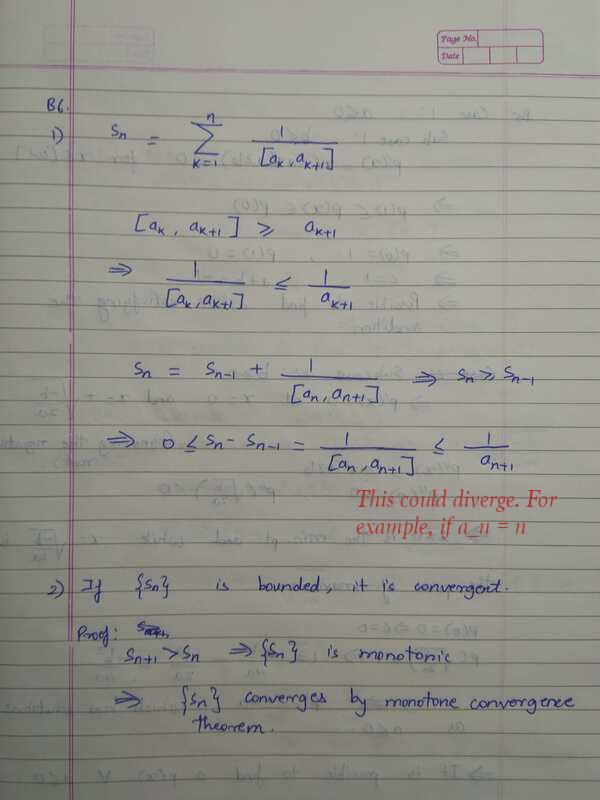 Page No.
Date
B6.
1) S_n = \sum_{k=1}^{n} \frac{1}{[a_k, a_{k+1}]}
[a_k, a_{k+1}] ⩾ a_{k+1}
⇒ \frac{1}{[a_k, a_{k+1}]} ≤ \frac{1}{a_{k+1}}
S_n = S_{n-1} + \frac{1}{[a_n, a_{n+1}]} ⇒ S_n ⩾ S_{n-1}
⇒ 0 ≤ S_n - S_{n-1} = \frac{1}{[a_n, a_{n+1}]} ≤ \frac{1}{a_{n+1}}
This could diverge. For
example, if a_n = n
2) If {S_n} is bounded, it is convergent.
Proof:
S_{n+1} > S_n ⇒ {S_n} is monotonic
⇒ {S_n} converges by monotone convergence
theorem.